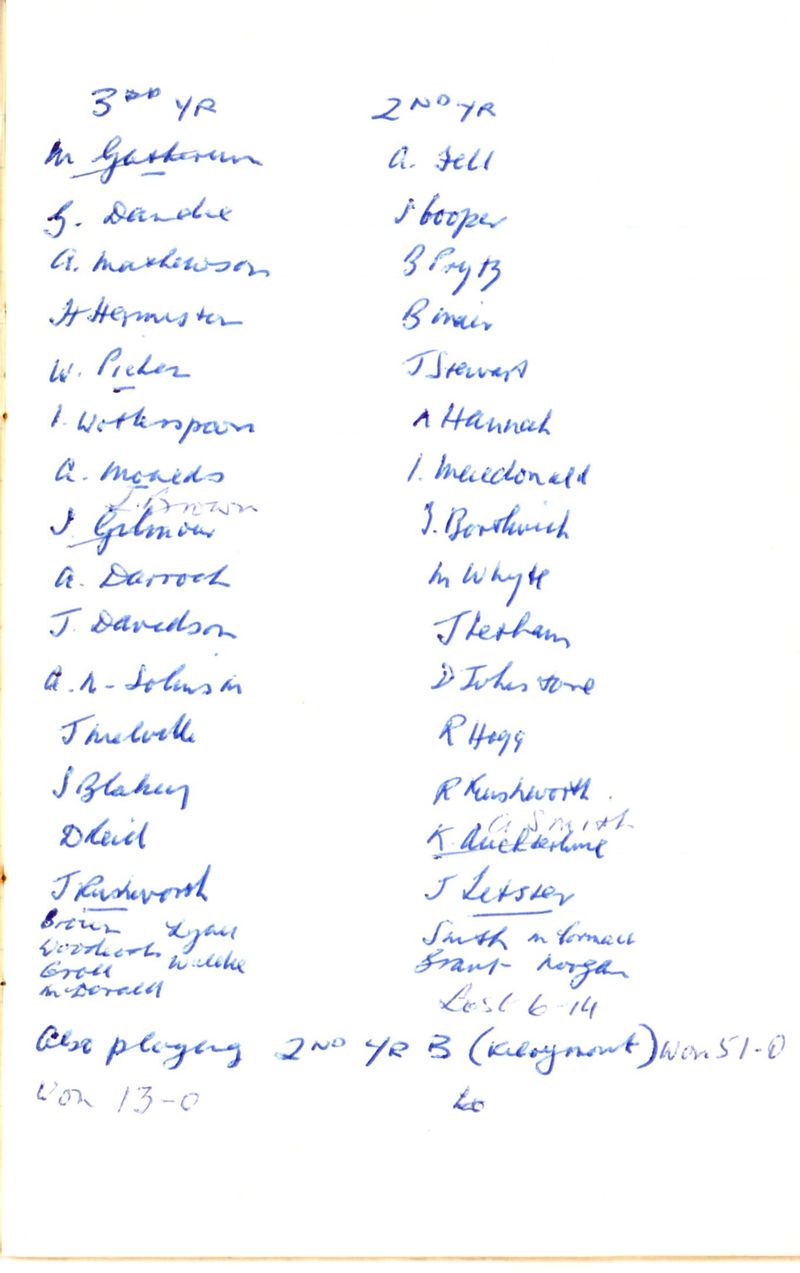 3RD YR
M
G. Dandie
A. Mathewson
H Hermiston
W. Picken
I. Wotherspoon
A.
J. Brown
J. Gilmour
A. Darroch
J. Davidson
A. N-Johnson
J Melville
J Blakey
D Reid
J Rushworth
Brown Lyall
McDonald
2ND YR
A. Fell
J Cooper
B Prytz
B Muir
J Stewart
A Hannah
I. Macdonald
J. Borthwick
M Whyte
J Letham
D Johnstone
R Hogg
R Rushworth.
A Smith
K. Auchterlonie
J Letster
Smith McCormack
Grant Morgan
Lost 6-14
Also playing 2ND YR B (Kilrymont) Won 51-0
Won 13-0
Lo